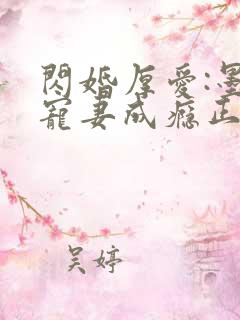 閃婚厚愛:墨
寵妻成癮正
吴婷